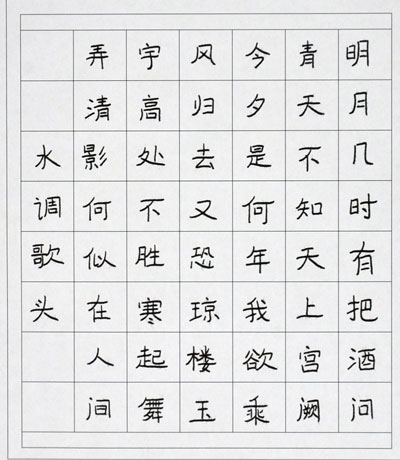 明月几时有把酒问
青天不知天上宫阙
今夕是何年我欲乘
风归去又恐琼楼玉
宇高处不胜寒起舞
弄清影何似在人间
水调歌头